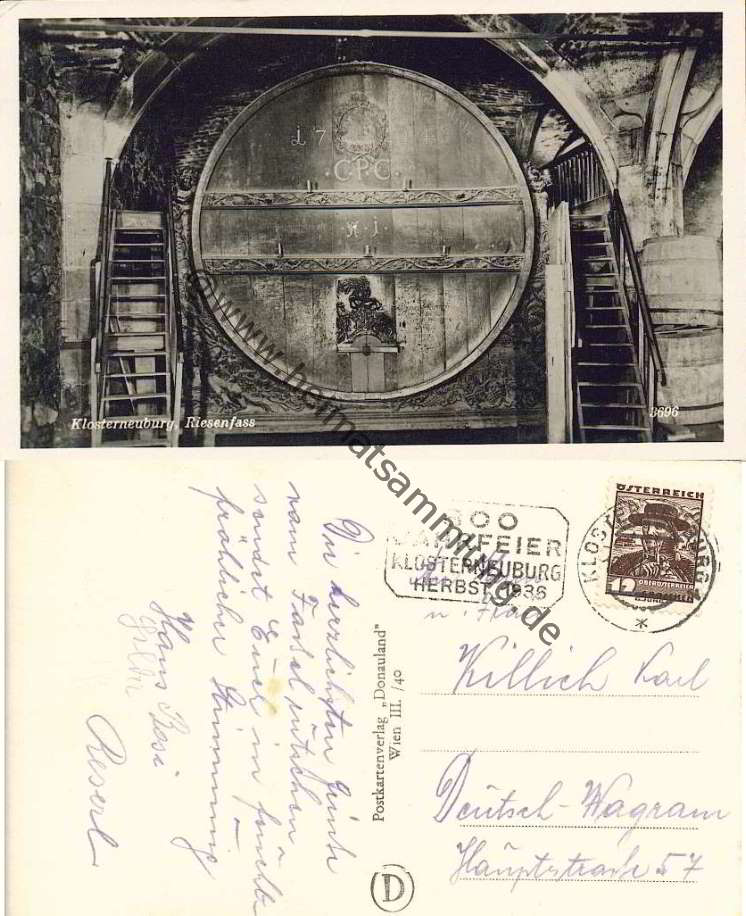 17 04
C.P.C.
Klosterneuburg, Riesenfass
3696
www.heimatsammlung.de
Die herzlichsten Grüße
vom Fasselrutschen
sendet Euch in
fröhlicher Stimmung
Hans Resi
Reserl
Postkartenverlag „Donauland"
Wien III. /40
D
800
JAHRFEIER
KLOSTERNEUBURG
HERBST 1936
ÖSTERREICH
12
OBERÖSTERREICH
GROSCHEN
KLOSTERNEUBURG
Killich Karl
Deutsch-Wagram
Hauptstraße 57